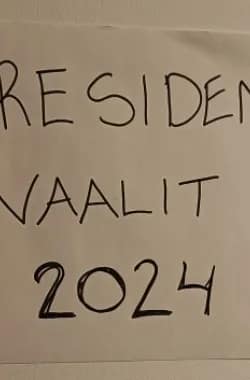 RESIDEN
VAALIT
2024